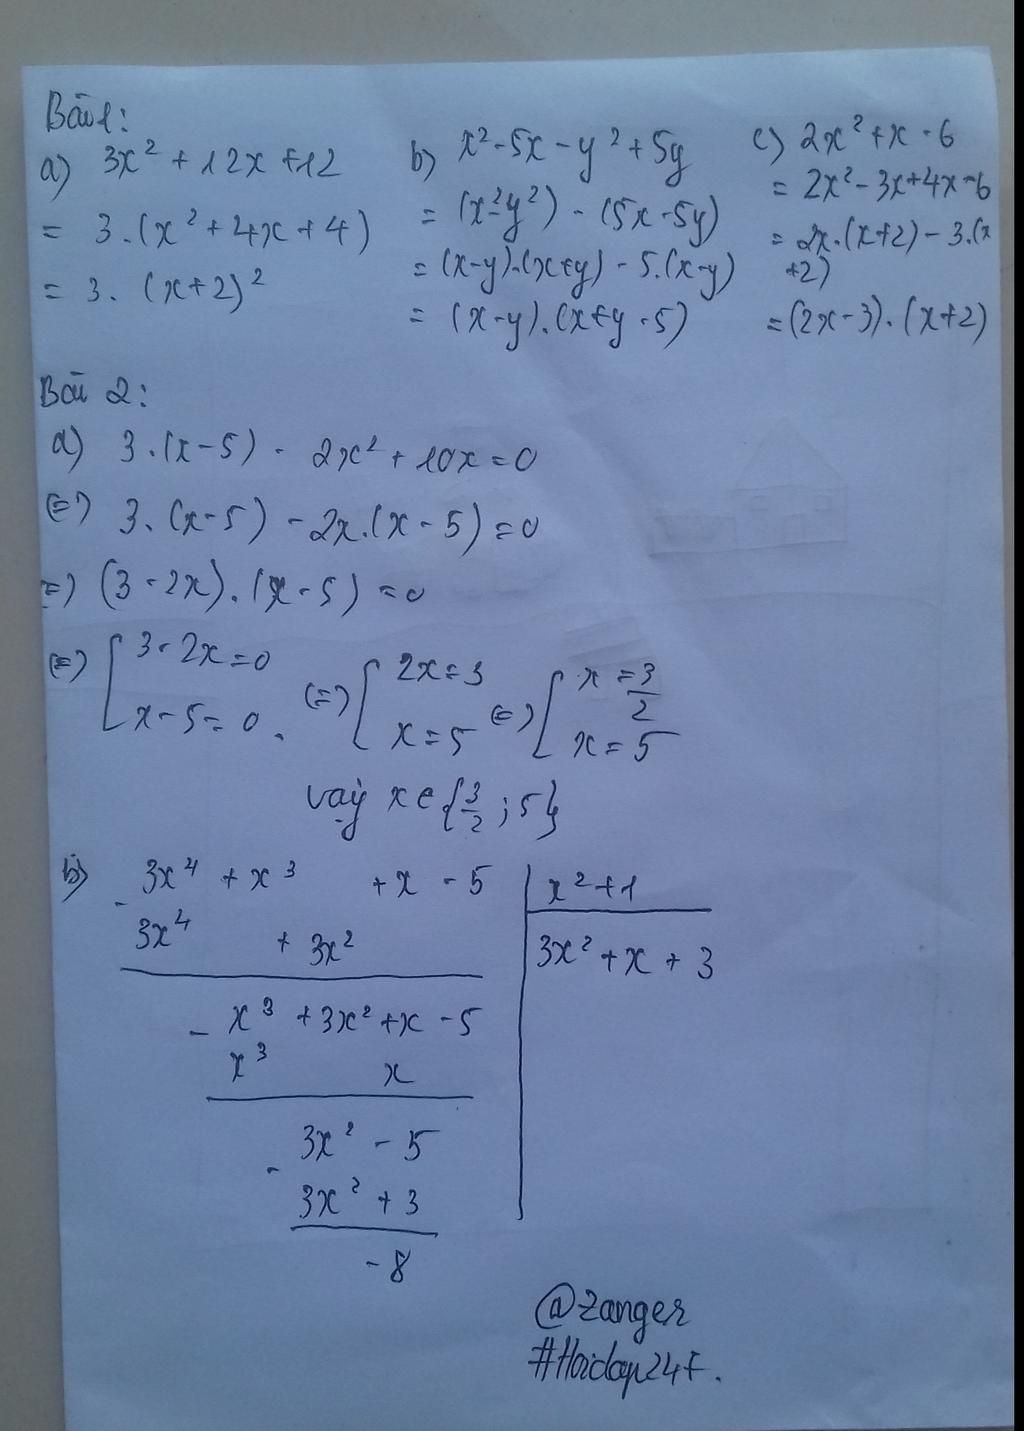 Bài 1:
a) 3x² + 12x + 12
= 3.(x² + 4x + 4)
= 3. (x+2)²
b) x² - 5x - y² + 5y
= (x² - y²) - (5x - 5y)
= (x-y).(x+y) - 5.(x-y)
= (x-y).(x+y-5)
c) 2x² + x - 6
= 2x² - 3x + 4x - 6
= 2x.(x+2) - 3.(x
+2)
= (2x-3).(x+2)
Bài 2:
a) 3.(x-5) - 2x² + 10x = 0
(=) 3.(x-5) - 2x.(x-5) = 0
=) (3-2x).(x-5) = 0
(=) [ 3-2x=0 (=) [ 2x=3 (=) [ x = 3/2
x-5=0. x=5 x=5
vậy x ∈ {3/2 ; 5}
b) 3x⁴ + x³ + x - 5 | x² + 1
- 3x⁴ + 3x² | 3x² + x + 3
- x³ + 3x² + x - 5
x³ x
- 3x² - 5
3x² + 3
-8
@Zanger
#Hoidap24F.